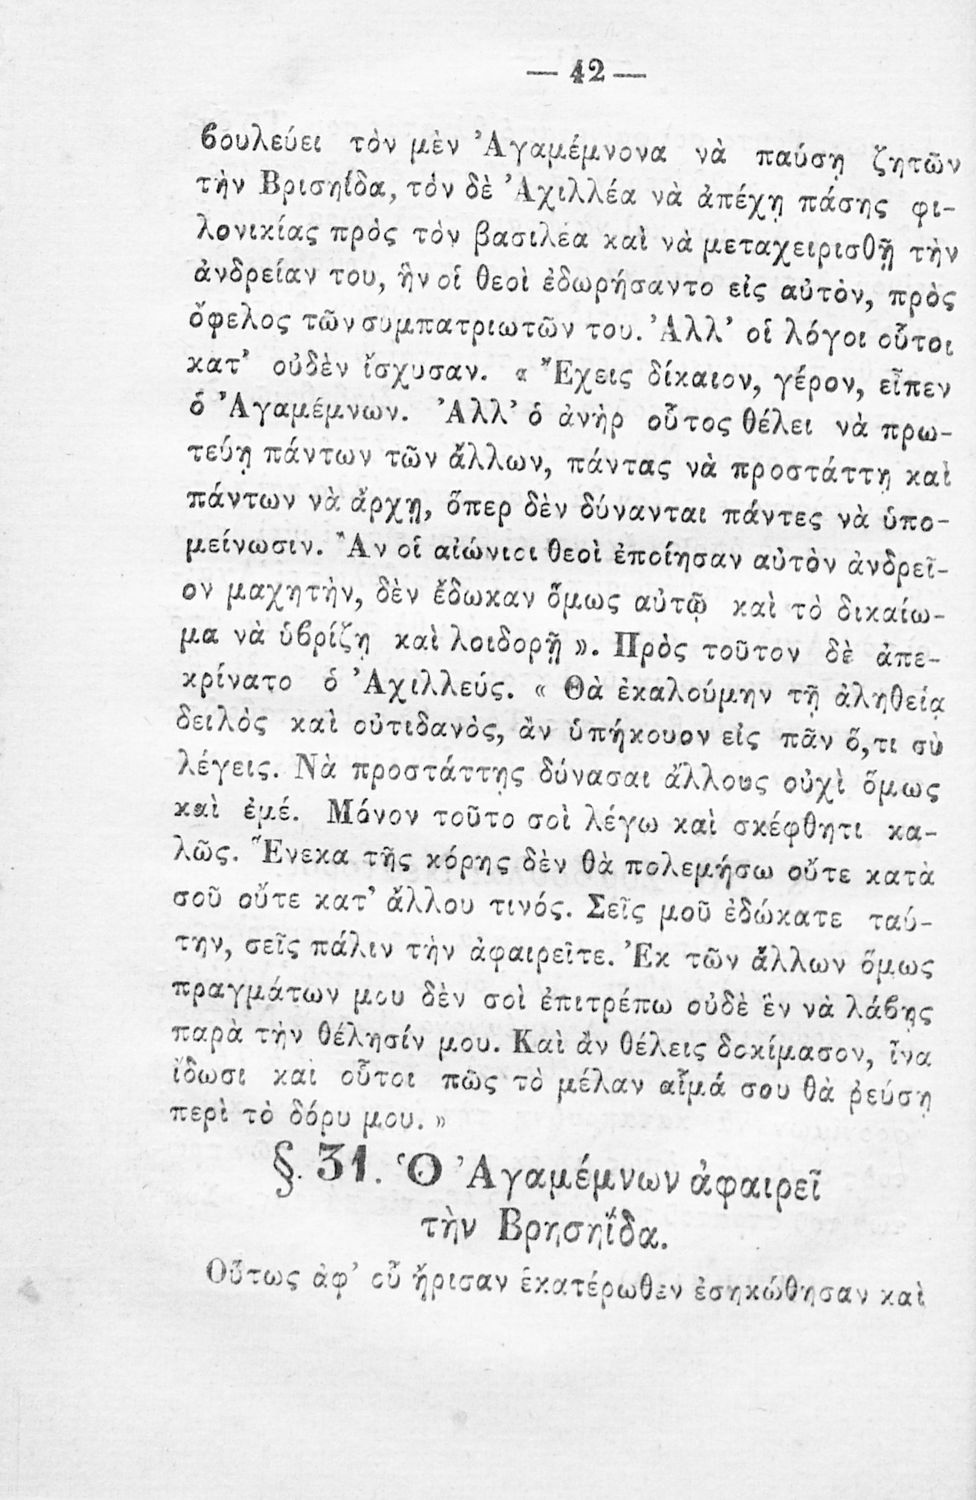 — 42 —
βουλεύει τὸν μὲν Ἀγαμέμνονα νὰ παύσῃ ζητῶν
τὴν Βρισηΐδα, τὸν δὲ Ἀχιλλέα νὰ ἀπέχῃ πάσης φι-
λονικίας πρὸς τὸν βασιλέα καὶ νὰ μεταχειρισθῇ τὴν
ἀνδρείαν του, ἣν οἱ θεοὶ ἐδωρήσαντο εἰς αὐτὸν, πρὸς
ὄφελος τῶν συμπατριωτῶν του. Ἀλλ’ οἱ λόγοι οὗτοι
κατ’ οὐδὲν ἴσχυσαν. « Ἔχεις δίκαιον, γέρον, εἶπεν
ὁ Ἀγαμέμνων. Ἀλλ’ ὁ ἀνὴρ οὗτος θέλει νὰ πρω-
τεύῃ πάντων τῶν ἄλλων, πάντας νὰ προστάττῃ καὶ
πάντων νὰ ἄρχῃ, ὅπερ δὲν δύνανται πάντες νὰ ὑπο-
μείνωσιν. Ἂν οἱ αἰώνιοι θεοὶ ἐποίησαν αὐτὸν ἀνδρεῖ-
ον μαχητὴν, δὲν ἔδωκαν ὅμως αὐτῷ καὶ τὸ δικαίω-
μα νὰ ὑβρίζῃ καὶ λοιδορῇ ». Πρὸς τοῦτον δὲ ἀπε-
κρίνατο ὁ Ἀχιλλεύς. « Θὰ ἐκαλούμην τῇ ἀληθείᾳ
δειλὸς καὶ οὐτιδανὸς, ἂν ὑπήκουον εἰς πᾶν ὅ,τι σὺ
λέγεις. Νὰ προστάττῃς δύνασαι ἄλλους οὐχὶ ὅμως
καὶ ἐμέ. Μόνον τοῦτο σοὶ λέγω καὶ σκέφθητι κα-
λῶς. Ἕνεκα τῆς κόρης δὲν θὰ πολεμήσω οὔτε κατὰ
σοῦ οὔτε κατ’ ἄλλου τινός. Σεῖς μοῦ ἐδώκατε ταύ-
την, σεῖς πάλιν τὴν ἀφαιρεῖτε. Ἐκ τῶν ἄλλων ὅμως
πραγμάτων μου δὲν σοὶ ἐπιτρέπω οὐδὲ ἓν νὰ λάβῃς
παρὰ τὴν θέλησίν μου. Καὶ ἂν θέλεις δοκίμασον, ἵνα
ἴδωσι καὶ οὗτοι πῶς τὸ μέλαν αἷμά σου θὰ ῥεύσῃ
περὶ τὸ δόρυ μου. »
§. 31. Ὁ Ἀγαμέμνων ἀφαιρεῖ
τὴν Βρησηΐδα.
Οὕτως ἀφ’ οὗ ἤρισαν ἑκατέρωθεν ἐσηκώθησαν καὶ